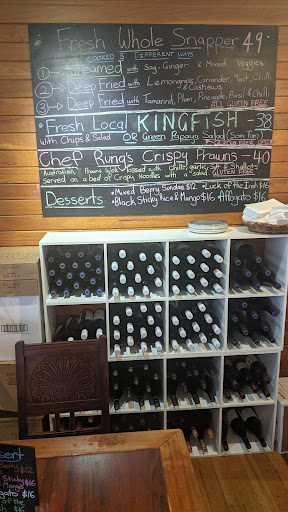 Fresh Whole Snapper 49
COOKED 3 DIFFERENT WAYS
1 Steamed with Soy, Ginger & Mixed Veggies
2 Deep Fried with Lemongrass, Coriander, Mint, Chilli & Cashews
3 Deep Fried with Tamarind, Plum, Pineapple, Basil & Chilli
ALL GLUTEN FREE
• Fresh Local KINGFISH - 38
with Chips & Salad OR Green Papaya Salad (Som Tum)
GLUTEN FREE
Chef Rung's Crispy Prawns - 40
Australian Prawns Wok tossed with Chilli, Garlic, Salt & Shallots
Served on a bed of Crispy Noodles with a salad GLUTEN FREE
Desserts
• Mixed Berry Sundae $12 • Luck of the Irish $16
• Black Sticky Rice & Mango $16 Affogato $16
ssert
Berry $12
Sticky $16
& Mango
gato $16
of the
sh $16